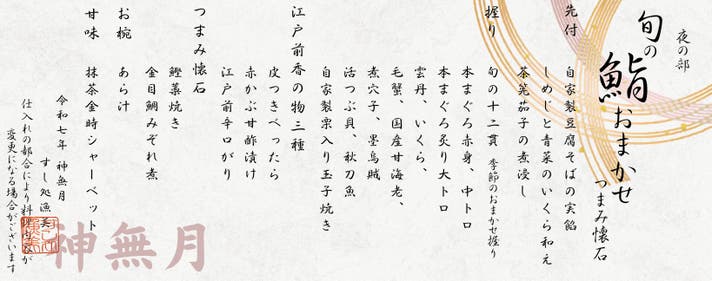 夜の部
旬の鮨おまかせ
つまみ懐石
先付
自家製豆腐そばの実餡
しめじと青菜のいくら和え
茶筅茄子の煮浸し
握り
旬の十二貫 季節のおまかせ握り
本まぐろ赤身、中トロ
本まぐろ炙り大トロ
雲丹、いくら、
毛蟹、国産甘海老、
煮穴子、墨烏賊
活つぶ貝、秋刀魚
自家製栗入り玉子焼き
江戸前香の物三種
皮つきべったら
赤かぶ甘酢漬け
江戸前辛口がり
つまみ懐石
鰹藁焼き
金目鯛みぞれ煮
お椀 あら汁
甘味 抹茶金時シャーベット
令和七年 神無月
すし処漁美
仕入れの都合により料理内容が
変更になる場合がございます
神無月